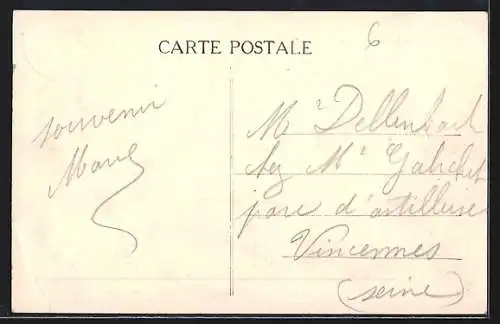 CARTE POSTALE
6
souvenir
Marie
Mr Dellenbach
chez Mr Galichet
parc d'artillerie
Vincennes
(seine)